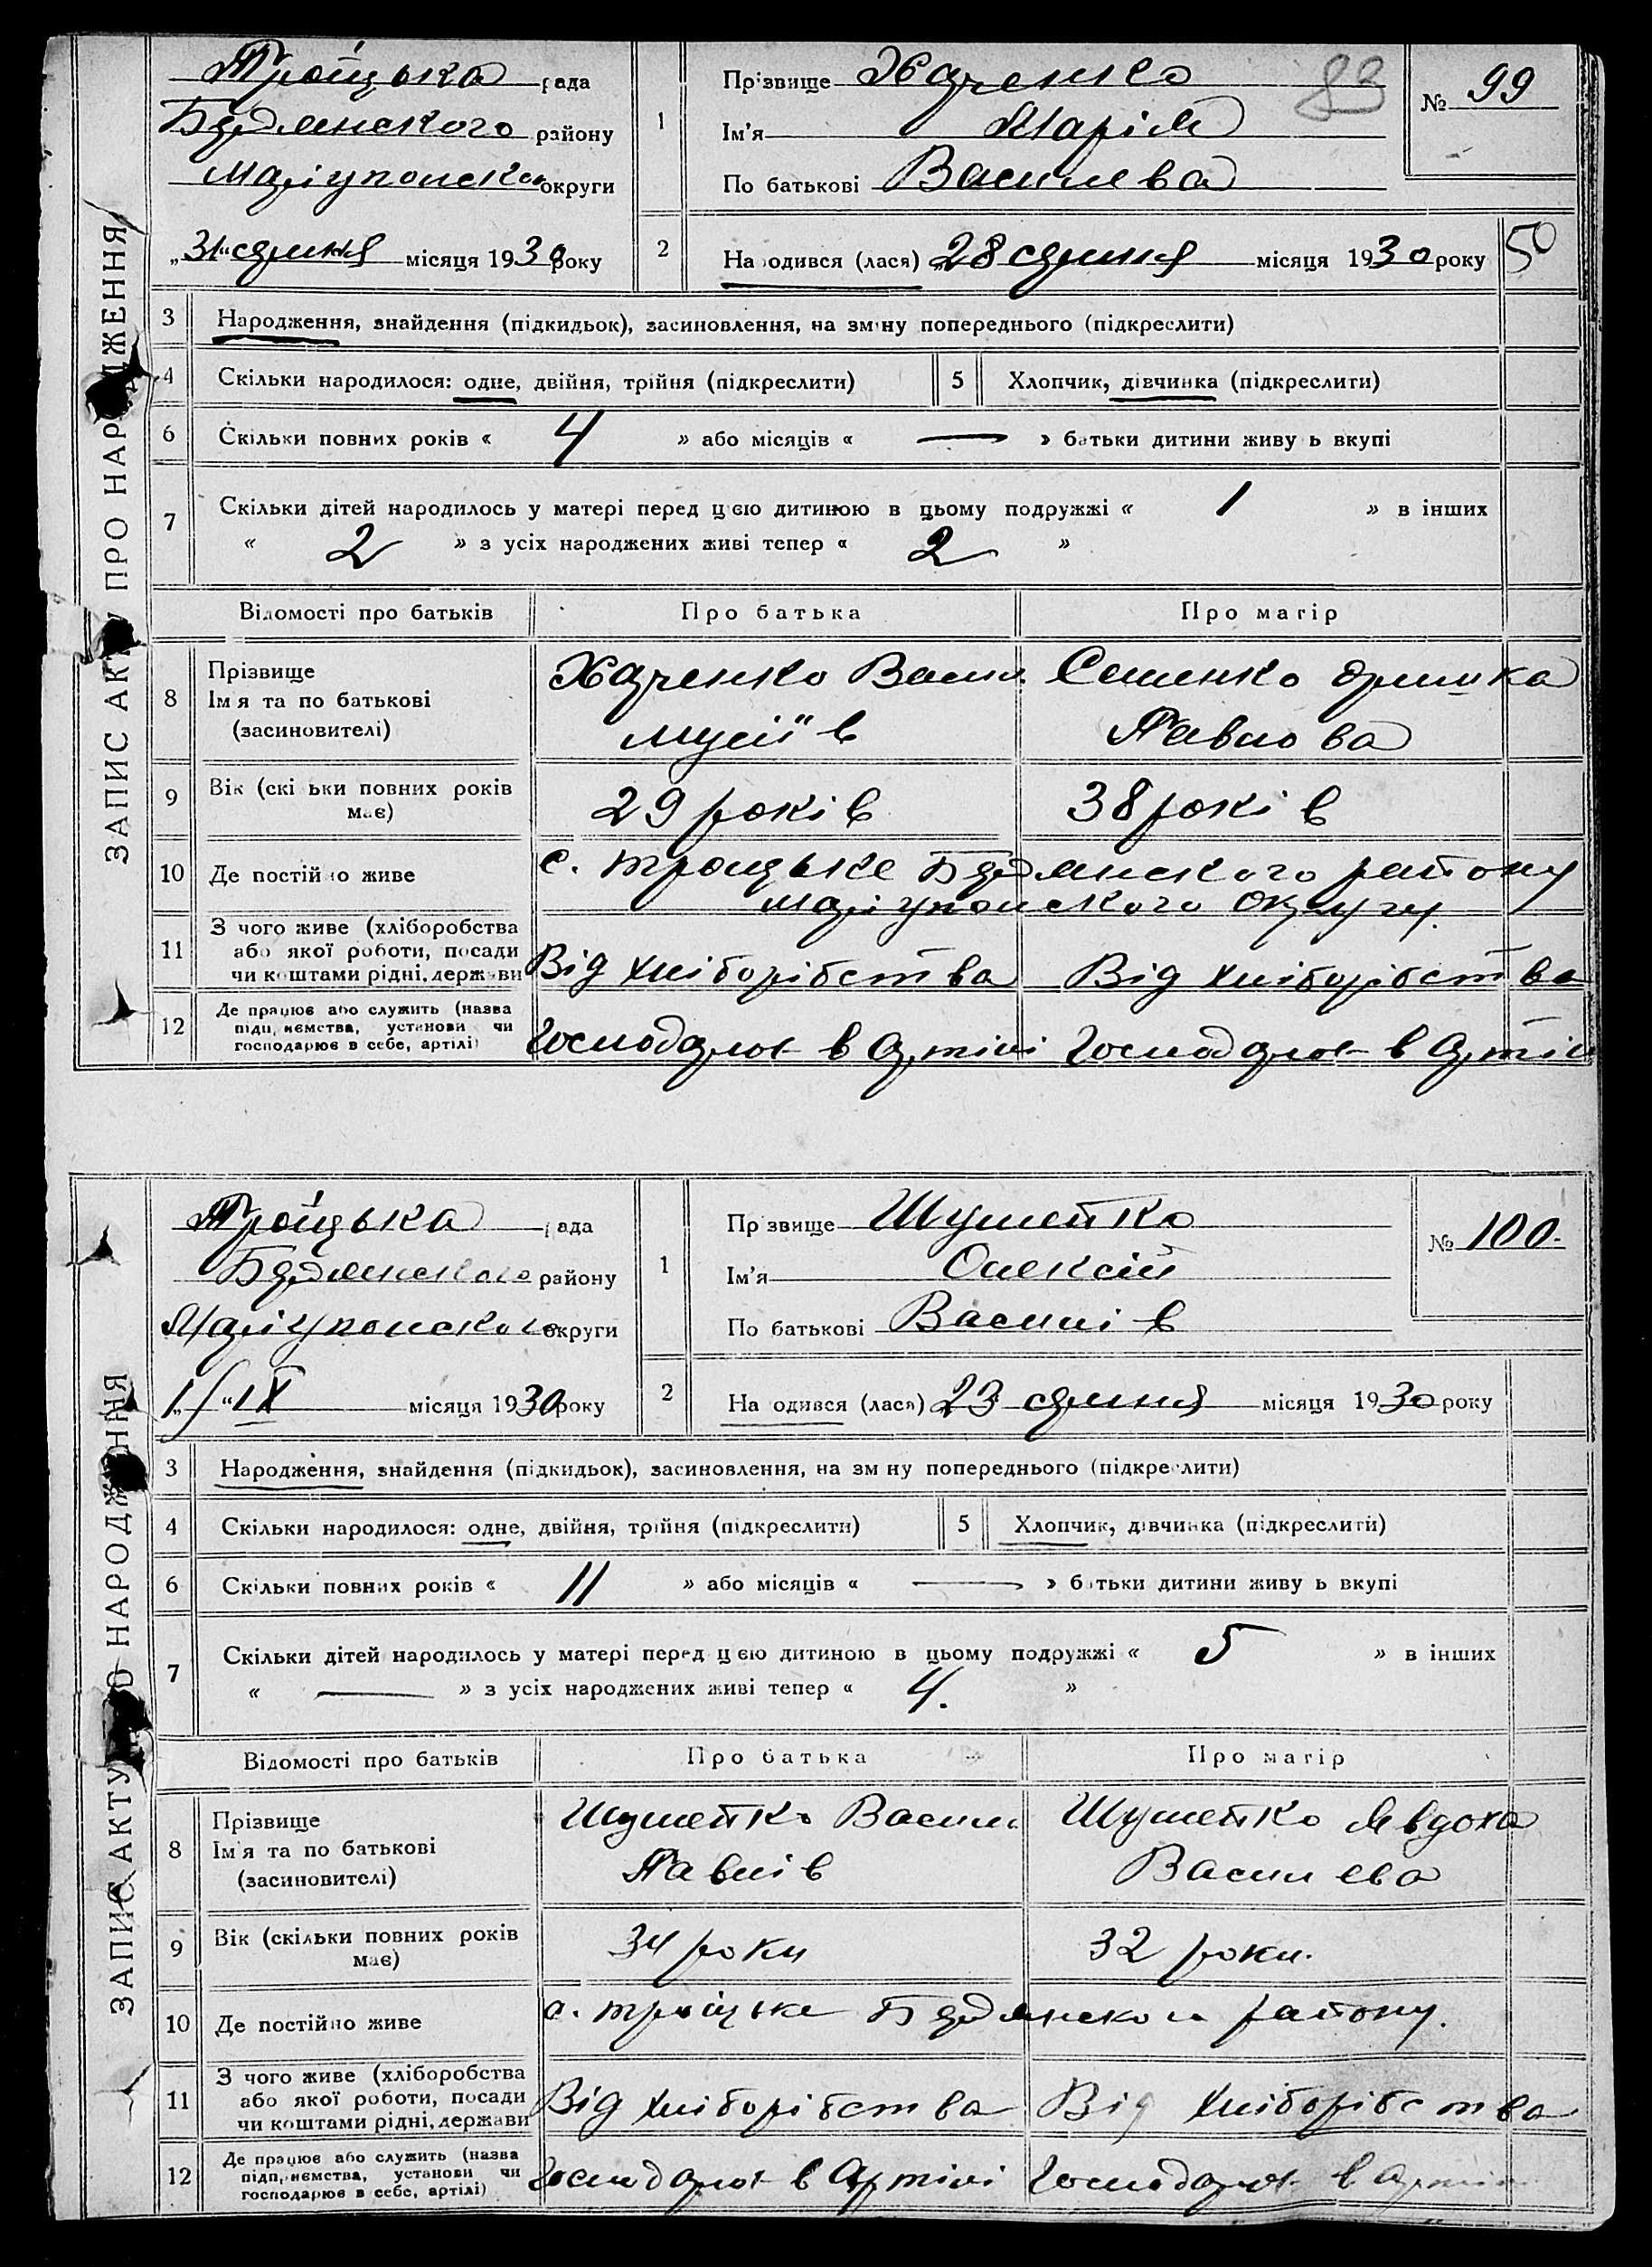 ЗАПИС АКТУ ПРО НАРОДЖЕННЯ
Троїцька рада
Бердянського району
Маріупольської округи
„31“ серпня місяця 1930 року
1
Прізвище Харченко
Ім'я Марія
По батькові Василева
83
№ 99
2
Народився (лася) „28 серпня місяця 1930 року
50
3 Народження, знайдення (підкидьок), засиновлення, на зміну попереднього (підкреслити)
4 Скільки народилося: одне, двійня, трійня (підкреслити) 5 Хлопчик, дівчинка (підкреслити)
6 Скільки повних років « 4 » або місяців « — » батьки дитини живуть вкупі
7 Скільки дітей народилось у матері перед цією дитиною в цьому подружжі « 1 » в інших
« 2 » з усіх народжених живі тепер « 2 »
Відомості про батьків Про батька Про матір
8 Прізвище
Ім'я та по батькові
(засиновителі)
Харченко Васил
Мусіїв
Семенко Оришка
Павлова
9 Вік (скільки повних років
має)
29 років 38 років
10 Де постійно живе
с. Троїцьке Бердянского району
Маріупольского округу.
11 З чого живе (хліборобства
або якої роботи, посади
чи коштами рідні, держави
Від хліборібства Від хліборібства
12 Де працює або служить (назва
підприємства, установи чи
господарює в себе, артілі)
Господарює в Артілі Господарює в Артіл
ЗАПИС АКТУ ПРО НАРОДЖЕННЯ
Троїцька рада
Бердянского району
Маріупольского округи
„1/“ IX місяця 1930 року
1
Прізвище Шумейко
Ім'я Олексій
По батькові Василів
№ 100.
2
Народився (лася) 23 серпня місяця 1930 року
3 Народження, знайдення (підкидьок), засиновлення, на зміну попереднього (підкреслити)
4 Скільки народилося: одне, двійня, трійня (підкреслити) 5 Хлопчик, дівчинка (підкреслити)
6 Скільки повних років « 11 » або місяців « — » батьки дитини живуть вкупі
7 Скільки дітей народилось у матері перед цією дитиною в цьому подружжі « 5 » в інших
« — » з усіх народжених живі тепер « 4. »
Відомості про батьків Про батька Про матір
8 Прізвище
Ім'я та по батькові
(засиновителі)
Шумейко Васил
Павлів
Шумейко Явдоха
Василева
9 Вік (скільки повних років
має)
34 роки 32 роки.
10 Де постійно живе
с. Троїцьке Бердянского району.
11 З чого живе (хліборобства
або якої роботи, посади
чи коштами рідні, держави
Від хліборібства Від хліборібства
12 Де працює або служить (назва
підприємства, установи чи
господарює в себе, артілі)
Господарює в Артілі Господарює в Артілі